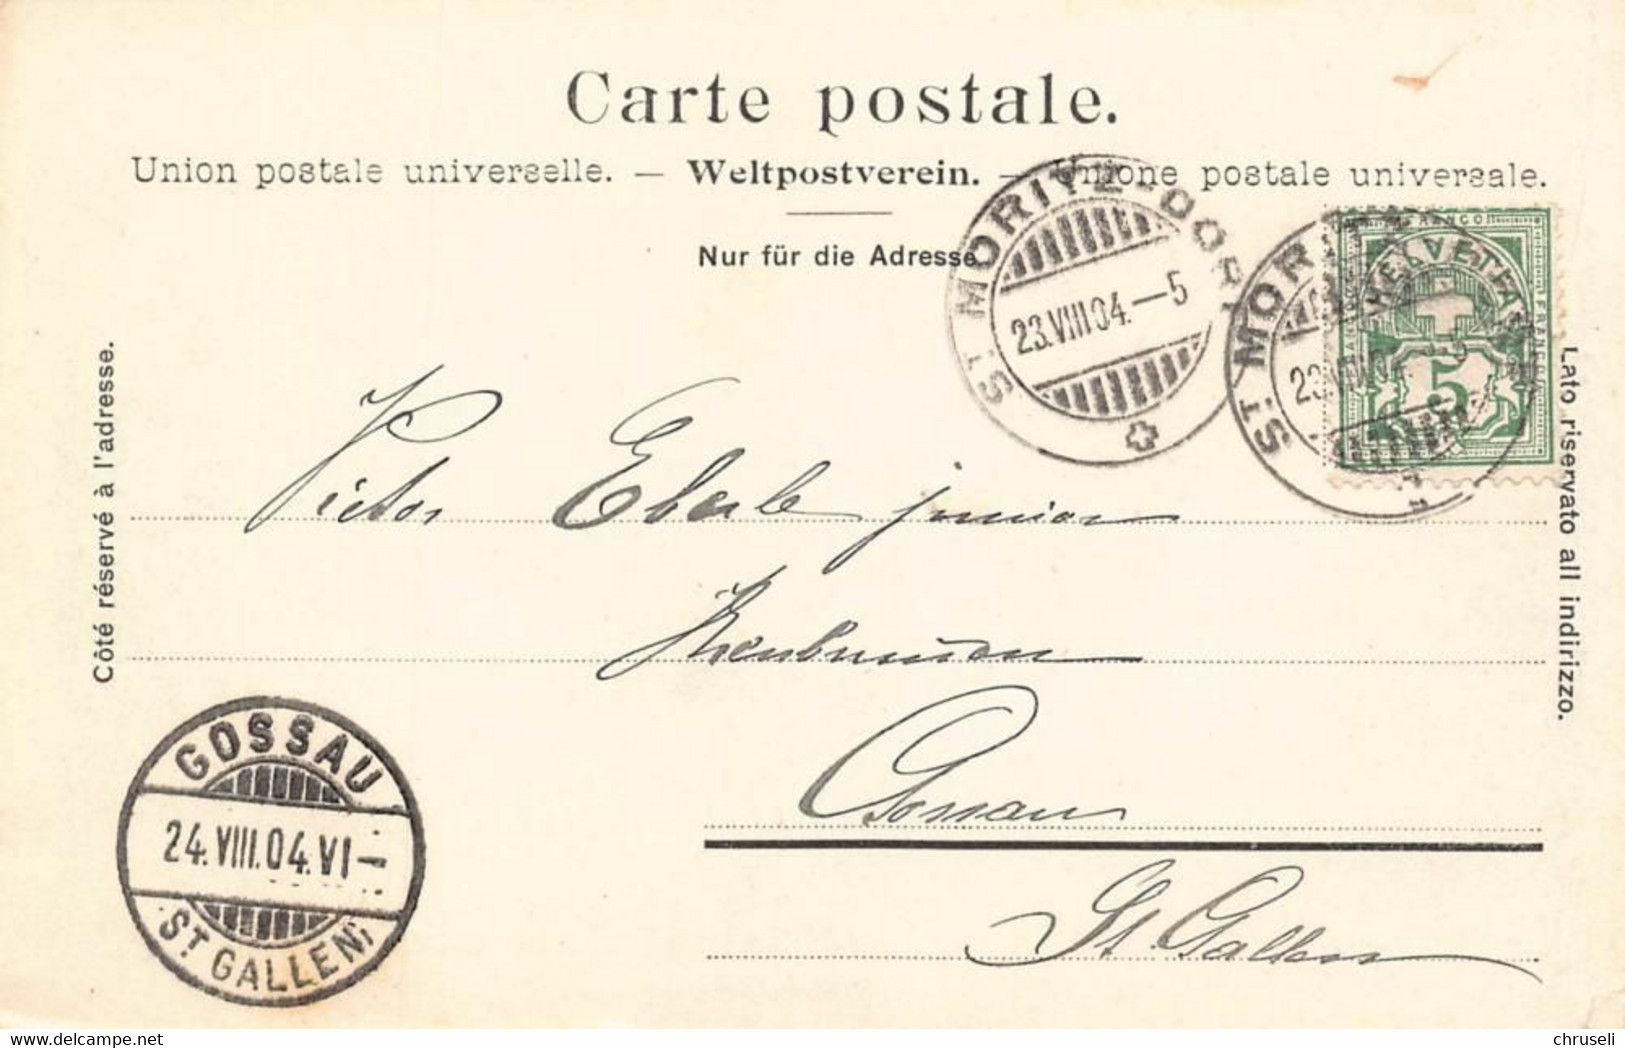 Carte postale.
Union postale universelle. — Weltpostverein. — Unione postale universale.
Nur für die Adresse
ST MORITZ-DORF
23.VIII.04.—5
ST MORITZ
23.VIII
FRANCO
HELVETIA
5
Côté réservé à l'adresse.
Lato riservato all indirizzo.
Victor Eberle junior
Gossau
St. Gallen
GOSSAU
24.VIII.04.VI—
ST. GALLEN
delcampe.net
chruseli